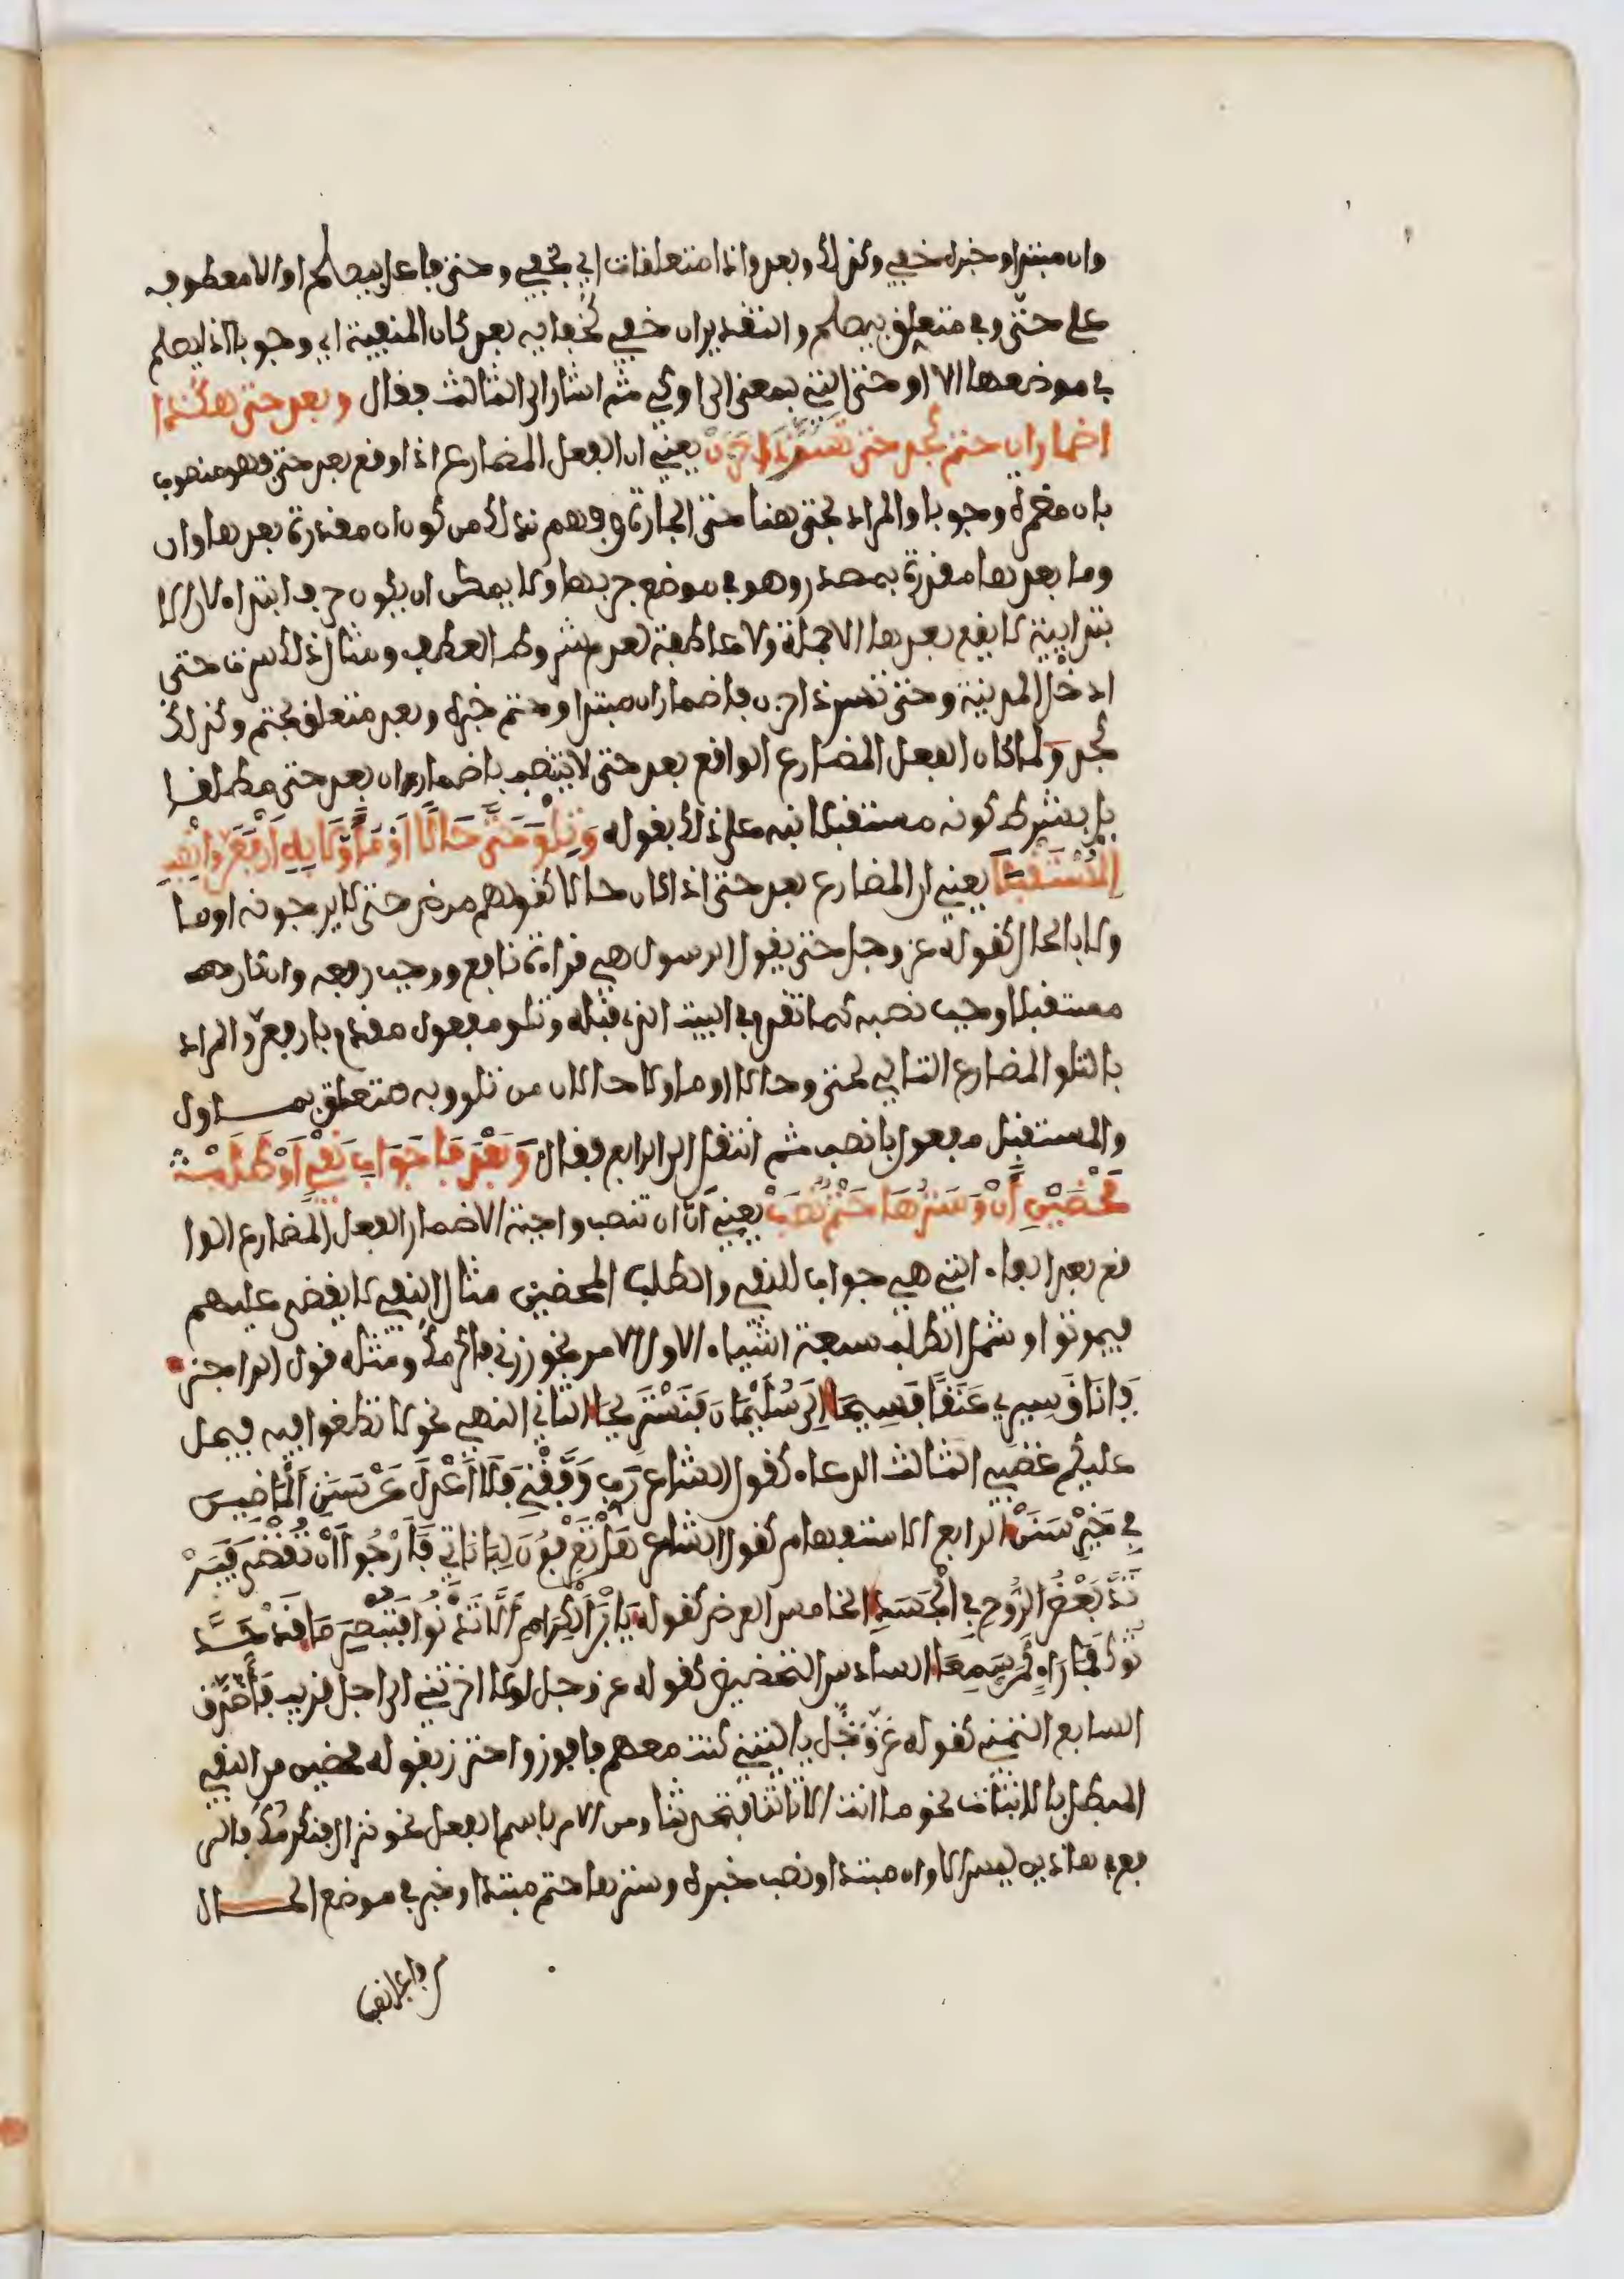 وان مبتدا وخبره خفي وكذلك وبعد واذا متعلقات اي بخفي وحتى فاعل بيصلح او الا معطوف
على حتى وفي متعلق بيصلح والتقدير ان خفي كخفايه بعد كان المنفية اي وجوبا اذا يصلح
في موضعها الا او حتى التي بمعنى الى او كي ثم اشار الى الثالث فقال وبعد حتى هكذا
اضمار ان حتم كجد حتى تسر ذا حزن يعني ان الفعل المضارع اذا وقع بعد حتى فهو منصوب
بان مضمرة وجوبا والمراد بحتى هنا حتى الجارة وفهم ذلك من كون ان مقدرة بعدها وان
وما بعدها مقدرة بمصدر وهو في موضع جر بها ولا يمكن ان يكون حرف ابتداء لان الا
بتدايية لا يقع بعدها الا جملة ولا عاطفة لعدم شروط العطف ومثال ذلك سرت حتى
ادخل المدينة وحتى تسر ذا حزن فاضمار ان مبتدا وحتم خبره وبعد متعلق بحتم وكذلك
كجد ولما كان الفعل المضارع الواقع بعد حتى لا ينتصب باضمار ان بعد حتى مطلقا
بل بشرط كونه مستقبلا نبه على ذلك بقوله وَتِلْوَ حَتَّى حَالًا أَوْ مُؤَوَّلَا بِهِ ارْفَعَنَّ وَانْصِبِ
الْمُسْتَقْبَلَا يعني ان المضارع بعد حتى اذا كان حالا كقولهم مرض حتى لا يرجونه او ما
ولا بالحال كقوله عز وجل حتى يقول الرسول هي قراءة نافع ووجب رفعه وان كان
مستقبلا وجب نصبه كما تقدم في البيت الذي قبله وتلو مفعول مقدم بارفعن والمراد
بالتلو المضارع التالي لحتى وحالا او ماولا حالان من تلو وبه متعلق بماول
والمستقبل مفعول بانصب ثم انتقل الى الرابع فقال وَبَعْدَ فَا جَوَابِ نَفْيٍ أَوْ طَلَبْ
مَحْضَيْنِ أَنْ وَسَتْرُهَا حَتْمٌ نَصَبْ يعني ان ان تنصب واجبة الاضمار الفعل المضارع الوا
قع بعد الفاء التي هي جواب للنفي والطلب المحضين مثال النفي لا يقضى عليهم
فيموتوا وشمل الطلب سبعة اشياء الاول الامر نحو زرني فاكرمك ومثله قول الراجز
يَا نَاقُ سِيرِي عَنَقًا فَسِيحَا إِلَى سُلَيْمَانَ فَنَسْتَرِيحَا الثاني النهي نحو لا تطغوا فيه فيحل
عليكم غضبي الثالث الدعاء كقول الشاعر رَبِّ وَفِّقْنِي فَلَا أَعْدِلَ عَنْ سَنَنِ الْمَاضِيينَ
فِي خَيْرِ سَنَنْ الرابع الاستفهام كقول الشاعر هَلْ تَعْرِفُونَ لُبَانَاتِي فَأَرْجُوا أَنْ تُقْضَى فَيَرْ
تَدَّ بَعْضُ الرُّوحِ فِي الْجَسَدِ الخامس العرض كقوله يَا بْنَ الْكِرَامِ أَلَا تَدْنُوا فَتُبْصِرَ مَا قَدْ حَدَّ
ثُوكَ فَمَا رَاءٍ كَمَنْ سَمِعَا السادس التحضيض كقوله عز وجل لولا اخرتني الى اجل قريب فَأَصَّدَّقَ
السابع التمني كقوله عَزَّ وَجَلَّ يا ليتني كنت معهم فافوز واحترز بقوله محضين من النفي
المبطل بالاثبات نحو ما انت الا تاتينا فتحدثنا ومن الامر باسم الفعل نحو نزال فنكرمك فالنـ
في هاذين ليس الا وان مبتدا ونصب خبره وسترها حتم مبتدا وخبر في موضع الحال